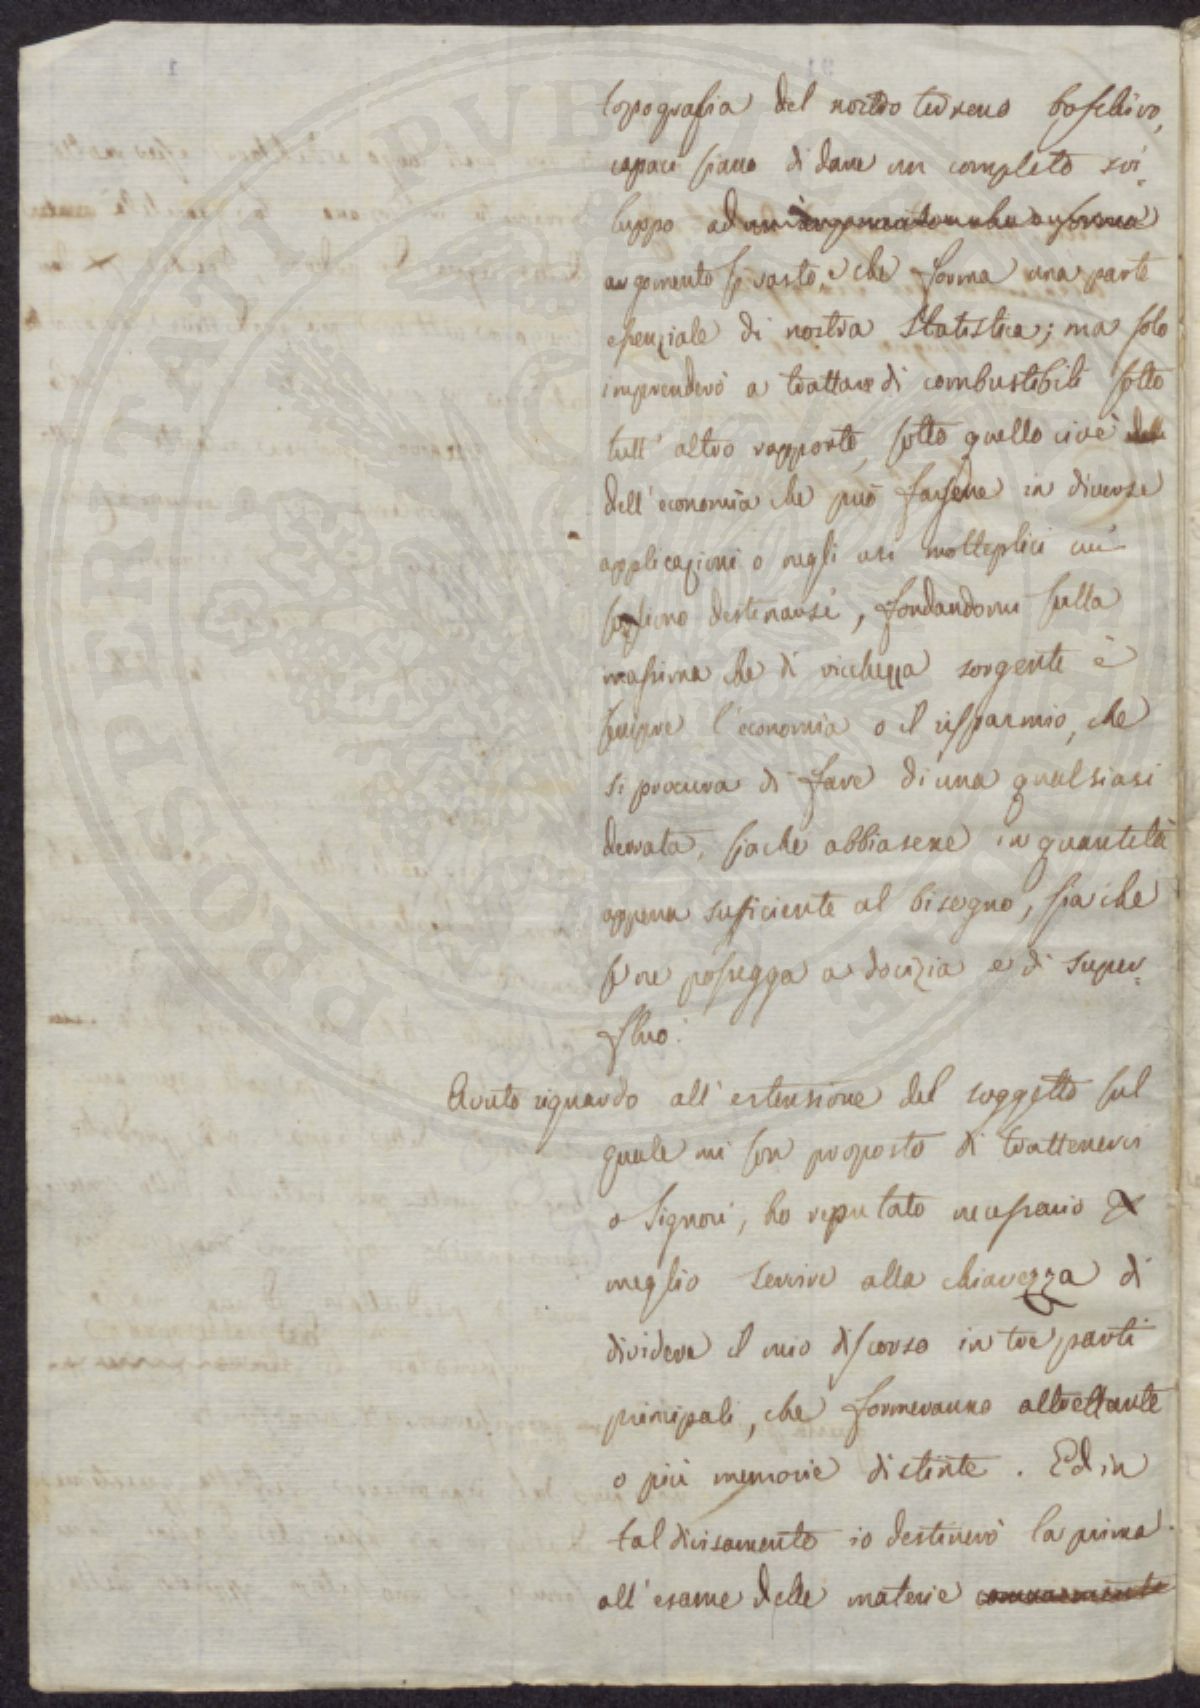 topografia del nostro terreno boschivo,
capaci siano di dare un completo svi-
luppo ad un argomento che forma
argomento sì vasto, e che forma una parte
essenziale di nostra Statistica; ma solo
imprenderò a trattare di combustibili sotto
tutt' altro rapporto, sotto quello cioè
dell' economia che può farsene in diverse
applicazioni o negli usi molteplici cui
possono destinarsi, fondandomi sulla
massima che di ricchezza sorgente è
sempre l' economia o il risparmio, che
si procura di fare di una qualsiasi
derrata, sia che abbiasene in quantità
appena suficiente al bisogno, sia che
se ne possegga a dovizia e di super-
fluo.
Avuto riguardo all' estensione del soggetto sul
quale mi son proposto di trattenervi
o Signori, ho reputato necessario
meglio servire alla chiarezza di
dividere il mio discorso in tre parti
principali, che formeranno altrettante
o più memorie distinte. Ed in
tal divisamento io destinerò la prima
all' esame delle materie comunemente
PROSPERITATI PVBLICAE